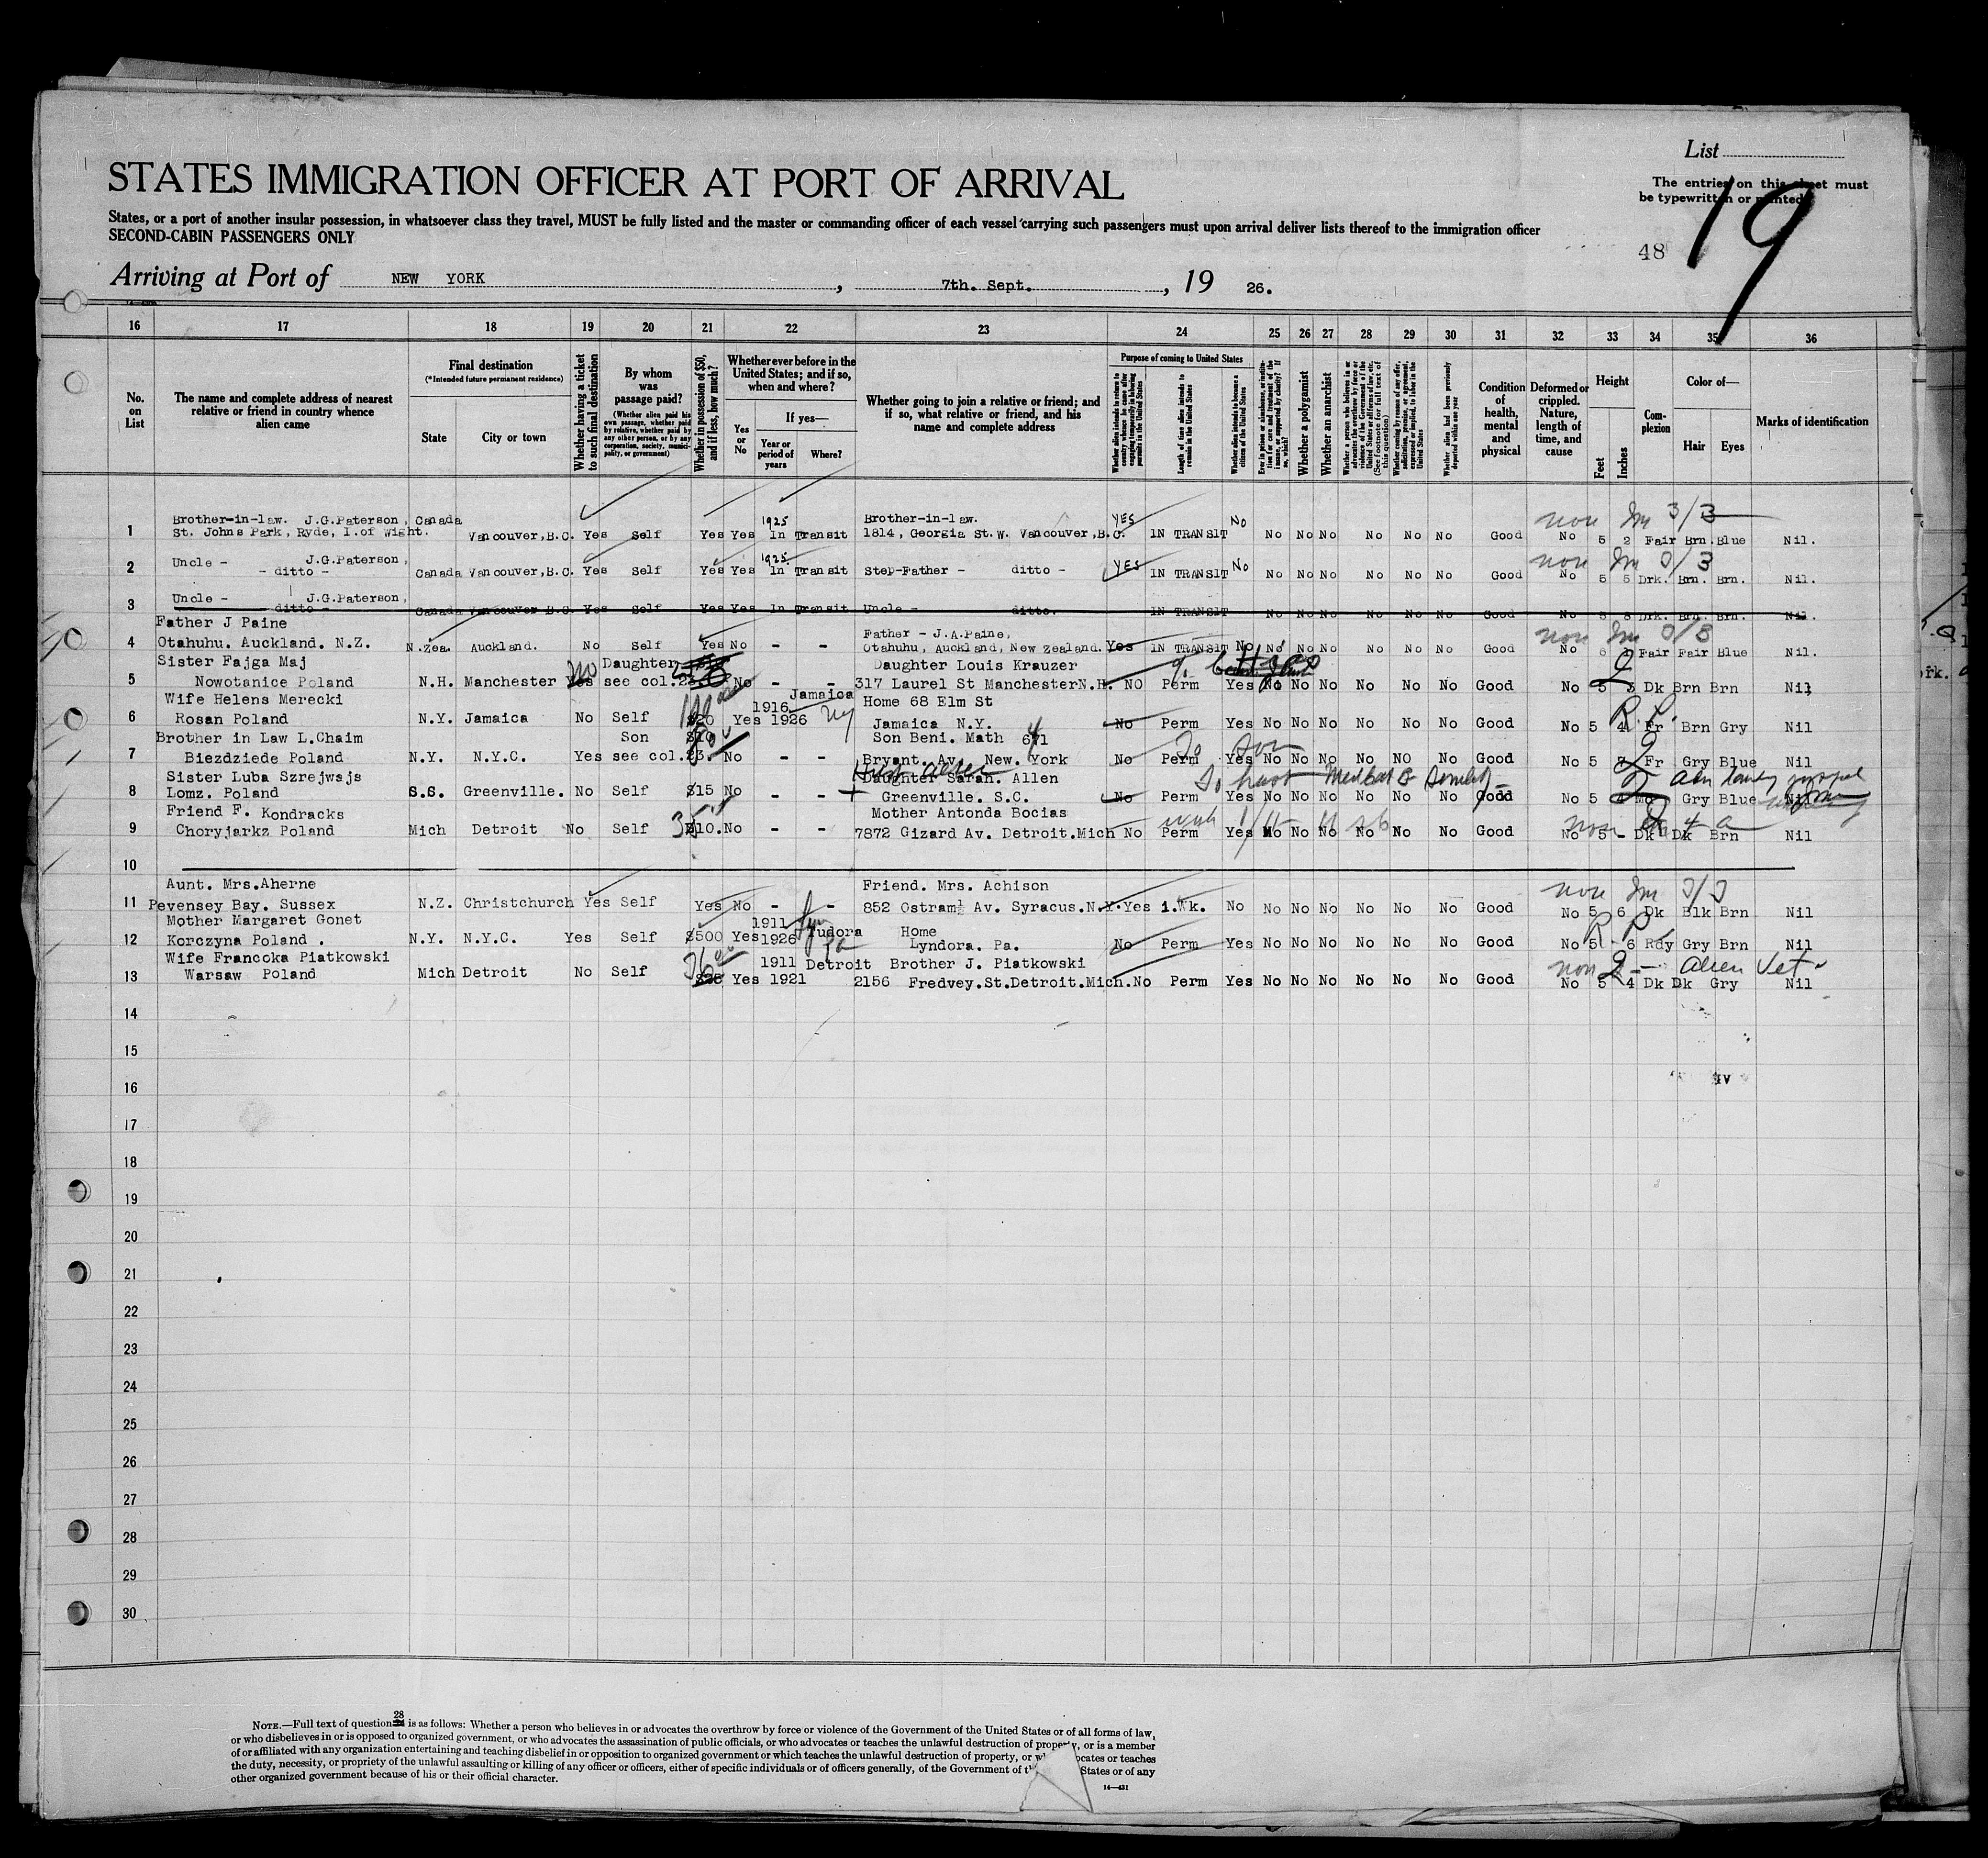 List
The entries on this sheet must
be typewritten or printed
STATES IMMIGRATION OFFICER AT PORT OF ARRIVAL
States, or a port of another insular possession, in whatsoever class they travel, MUST be fully listed and the master or commanding officer of each vessel carrying such passengers must upon arrival deliver lists thereof to the immigration officer
SECOND-CABIN PASSENGERS ONLY
48 19
Arriving at Port of NEW YORK, 7th. Sept., 19 26.
16 17 18 19 20 21 22 23 24 25 26 27 28 29 30 31 32 33 34 35 36
No. on List
The name and complete address of nearest relative or friend in country whence alien came
Final destination
(*Intended future permanent residence)
State
City or town
Whether having a ticket to such final destination
By whom was passage paid?
(Whether alien paid his own passage, whether paid by relative, whether paid by any other person, or by any corporation, society, municipality, or government)
Whether in possession of $50, and if less, how much?
Whether ever before in the United States; and if so, when and where?
Yes or No
If yes—
Year or period of years
Where?
Whether going to join a relative or friend; and if so, what relative or friend, and his name and complete address
Purpose of coming to United States
Whether alien intends to return to country whence he came after engaging temporarily in laboring pursuits in the United States
Length of time alien intends to remain in the United States
Whether alien intends to become a citizen of the United States
Whether a polygamist
Whether an anarchist
Condition of health, mental and physical
Deformed or crippled. Nature, length of time, and cause
Height
Feet
Inches
Complexion
Color of—
Hair
Eyes
Marks of identification
Brother-in-law. J.G.Paterson, Canada 1925 Brother-in-law. YES No
1 St. Johns Park, Ryde, I.of Wight. Vancouver,B.C. Yes Self Yes Yes In Transit 1814, Georgia St.W. Vancouver,B.C. IN TRANSIT No No No No No No Good No 5 2 Fair Brn. Blue Nil.
Uncle - J.G.Paterson, 1925
2 - ditto - Canada Vancouver,B.C. Yes Self Yes Yes In Transit Step-Father - ditto - YES IN TRANSIT No No No No No No No Good No 5 5 Drk. Brn. Brn. Nil.
Uncle - J.G.Paterson,
3 ditto - Canada Vancouver B.C. Yes Self Yes Yes In Transit Uncle - ditto. IN TRANSIT No No No No No No Good No 5 8 Drk. Brn. Brn. Nil.
Father J Paine Father - J.A.Paine,
4 Otahuhu. Auckland. N.Z. N.Zea. Auckland. No Self Yes No - - Otahuhu, Auckland, New Zealand. Yes IN TRANSIT No No No No No No No Good No Fair Fair Blue Nil.
Sister Fajga Maj Daughter Daughter Louis Krauzer
5 Nowotanice Poland N.H. Manchester Yes see col.23 No - - 317 Laurel St Manchester N.H. NO Perm Yes No No No No No No Good No 5 3 Dk Brn Brn Nil
Wife Helens Merecki 1916 Jamaica Home 68 Elm St
6 Rosan Poland N.Y. Jamaica No Self $20 Yes 1926 Jamaica N.Y. No Perm Yes No No No No No No Good No 5 4 Fr Brn Gry Nil
Brother in Law L.Chaim Son $10 Son Beni. Math
7 Biezdziede Poland N.Y. N.Y.C. Yes see col.23. No - - Bryant. Av. New. York No Perm Yes No No No No NO No Good No 5 Fr Gry Blue Nil
Sister Luba Szrejwsjs Daughter Sarah. Allen
8 Lomz. Poland S.S. Greenville. No Self $15 No - - Greenville. S.C. No Perm Yes No No No No No No Good No 5 Gry Blue Nil
Friend F. Kondracks Mother Antonda Bocias
9 Choryjarkz Poland Mich Detroit No Self $10. No - - 7872 Gizard Av. Detroit.Mich No Perm Yes No No No No No No Good No 5 - Dk Dk Brn Nil
10
Aunt. Mrs.Aherne Friend. Mrs. Achison
11 Pevensey Bay. Sussex N.Z. Christchurch Yes Self Yes No - - 852 Ostram Av. Syracus.N.Y. Yes 1.Wk. No No No No No No No Good No 5 6 Dk Blk Brn Nil
Mother Margaret Gonet 1911 Home
12 Korczyna Poland . N.Y. N.Y.C. Yes Self $500 Yes 1926 Lyndora. Pa. No Perm Yes No No No No No No Good No 5 6 Rdy Gry Brn Nil
Wife Francoka Piatkowski 1911 Detroit Brother J. Piatkowski Alien Vet
13 Warsaw Poland Mich Detroit No Self $25 Yes 1921 2156 Fredvey.St.Detroit.Mich. No Perm Yes No No No No No No Good No 5 4 Dk Dk Gry Nil
14
15
16
17
18
19
20
21
22
23
24
25
26
27
28
29
30
28
NOTE.—Full text of question is as follows: Whether a person who believes in or advocates the overthrow by force or violence of the Government of the United States or of all forms of law,
or who disbelieves in or is opposed to organized government, or who advocates the assassination of public officials, or who advocates or teaches the unlawful destruction of property, or is a member
of or affiliated with any organization entertaining and teaching disbelief in or opposition to organized government or which teaches the unlawful destruction of property, or advocates or teaches
the duty, necessity, or propriety of the unlawful assaulting or killing of any officer or officers, either of specific individuals or of officers generally, of the Government of States or of any
other organized government because of his or their official character.
14—431